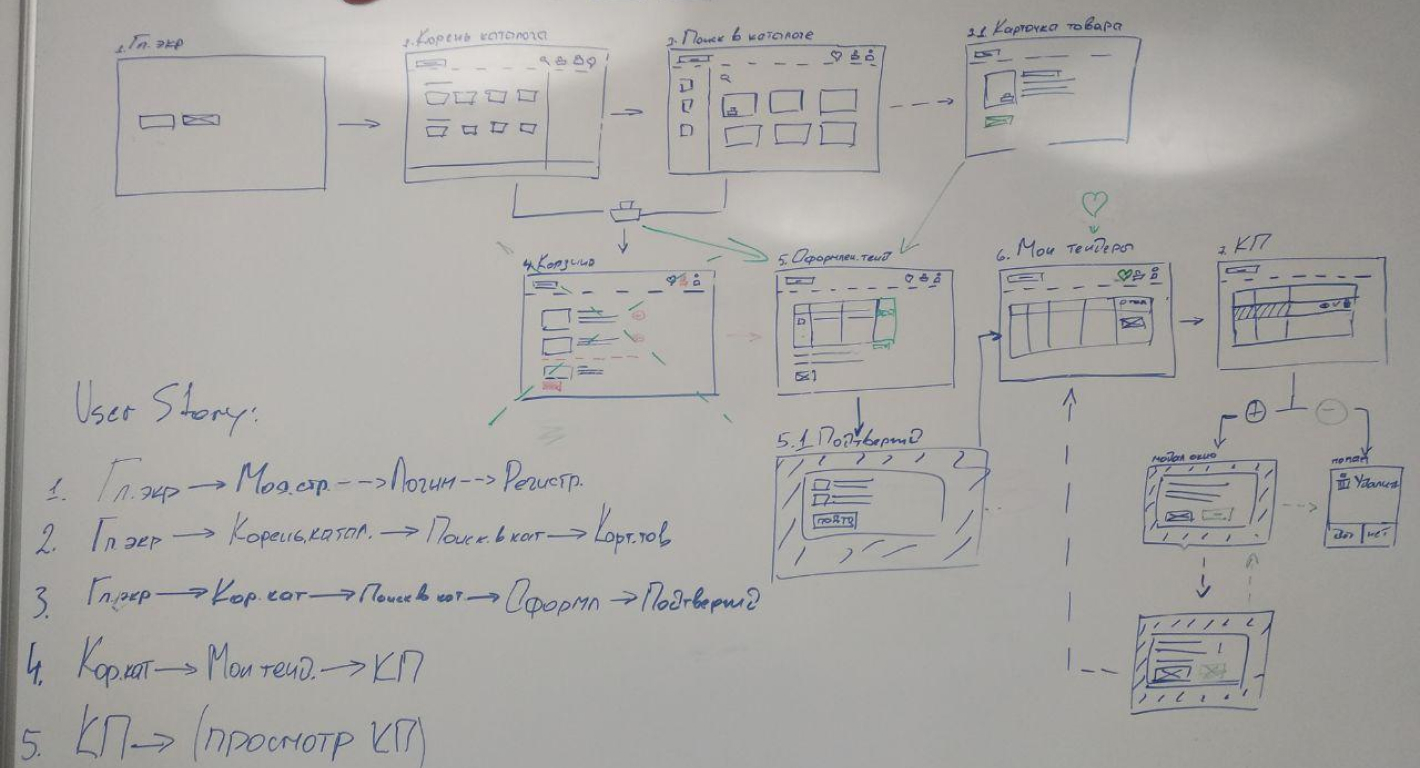 1. Гл. экр
2. Корень каталога
3. Поиск в каталоге
3.1 Карточка товара
4. Корзина
5. Оформлен. тенд
6. Мои тендеры
7. КП
5.1 Подтвержд
модал окно
Удалить
нет
User Story:
1. Гл. экр → Моя.стр. --> Логин --> Регистр.
2. Гл экр → Корень.катал. → Поиск. в кат → Карт.тов
3. Гл.экр → Кор.кат → Поиск в кат → Оформл → Подтвержд
4. Кор.кат → Мои тенд. → КП
5. КП → (просмотр КП)